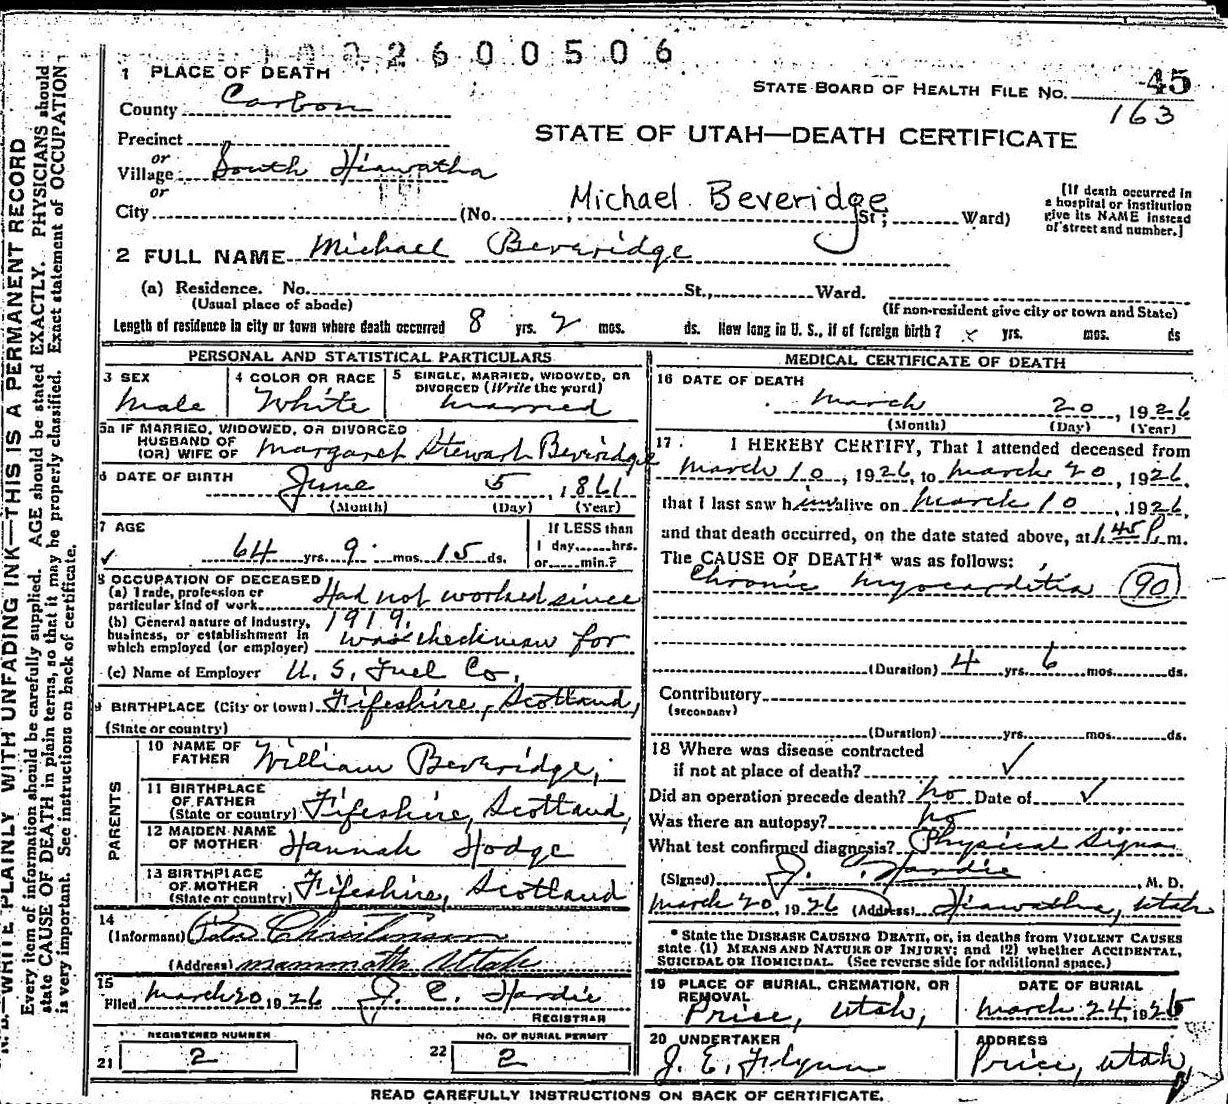 1002600506
1 PLACE OF DEATH
STATE BOARD OF HEALTH FILE NO. 45
163
County Carbon
STATE OF UTAH—DEATH CERTIFICATE
Precinct
or
Village South Hiawatha
or
City (No. Michael Beveridge St; Ward)
[If death occurred in
a hospital or institution
give its NAME instead
of street and number.]
2 FULL NAME Michael Beveridge
(a) Residence. No. St., Ward.
(Usual place of abode) (If non-resident give city or town and State)
Length of residence in city or town where death occurred 8 yrs. 2 mos. ds. How long in U. S., if of foreign birth? x yrs. mos. ds
PERSONAL AND STATISTICAL PARTICULARS
3 SEX
Male
4 COLOR OR RACE
White
5 SINGLE, MARRIED, WIDOWED, OR
DIVORCED (Write the word)
Married
5a IF MARRIED, WIDOWED, OR DIVORCED
HUSBAND OF
(OR) WIFE OF Margaret Stewart Beveridge
6 DATE OF BIRTH
June 5, 1861
(Month) (Day) (Year)
7 AGE
64 yrs. 9 mos. 15 ds.
If LESS than
1 day......hrs.
or......min.?
8 OCCUPATION OF DECEASED
(a) Trade, profession or
particular kind of work Had not worked since
1919.
(b) General nature of Industry,
business, or establishment in
which employed (or employer) was checkman for
(c) Name of Employer U. S. Fuel Co.,
9 BIRTHPLACE (City or town) Fifeshire, Scotland,
(State or country)
PARENTS
10 NAME OF
FATHER William Beveridge,
11 BIRTHPLACE
OF FATHER
(State or country) Fifeshire, Scotland,
12 MAIDEN NAME
OF MOTHER Hannah Hodge
13 BIRTHPLACE
OF MOTHER
(State or country) Fifeshire, Scotland
14
(Informant) Christensen
(Address) Mammoth Utah
15
Filed March 20, 1926 J. E. Hardie
REGISTRAR
REGISTERED NUMBER
21 2
NO. OF BURIAL PERMIT
22 2
MEDICAL CERTIFICATE OF DEATH
16 DATE OF DEATH
March 20, 1926
(Month) (Day) (Year)
17 I HEREBY CERTIFY, That I attended deceased from
March 10, 1926, to March 20, 1926,
that I last saw him alive on March 10, 1926,
and that death occurred, on the date stated above, at 1.45 P.m.
The CAUSE OF DEATH* was as follows:
Chronic Myocarditia 90
(Duration) 4 yrs. 6 mos. ds.
Contributory
(SECONDARY)
(Duration) yrs. mos. ds.
18 Where was disease contracted
if not at place of death? ✓
Did an operation precede death? No Date of ✓
Was there an autopsy? No
What test confirmed diagnosis? Physical Signs
(Signed) J. E. Hardie, M. D.
March 20, 1926 (Address) Hiawatha, Utah
* State the DISEASE CAUSING DEATH, or, in deaths from VIOLENT CAUSES
state (1) MEANS AND NATURE OF INJURY; and (2) whether ACCIDENTAL,
SUICIDAL OR HOMICIDAL. (See reverse side for additional space.)
19 PLACE OF BURIAL, CREMATION, OR
REMOVAL
Price, Utah,
DATE OF BURIAL
March 24, 1926
20 UNDERTAKER
J. E. Flynn
ADDRESS
Price, Utah
READ CAREFULLY INSTRUCTIONS ON BACK OF CERTIFICATE.
N. B.—WRITE PLAINLY WITH UNFADING INK—THIS IS A PERMANENT RECORD
Every item of information should be carefully supplied. AGE should be stated EXACTLY. PHYSICIANS should
state CAUSE OF DEATH in plain terms, so that it may be properly classified. Exact statement of OCCUPATION
is very important. See instructions on back of certificate.